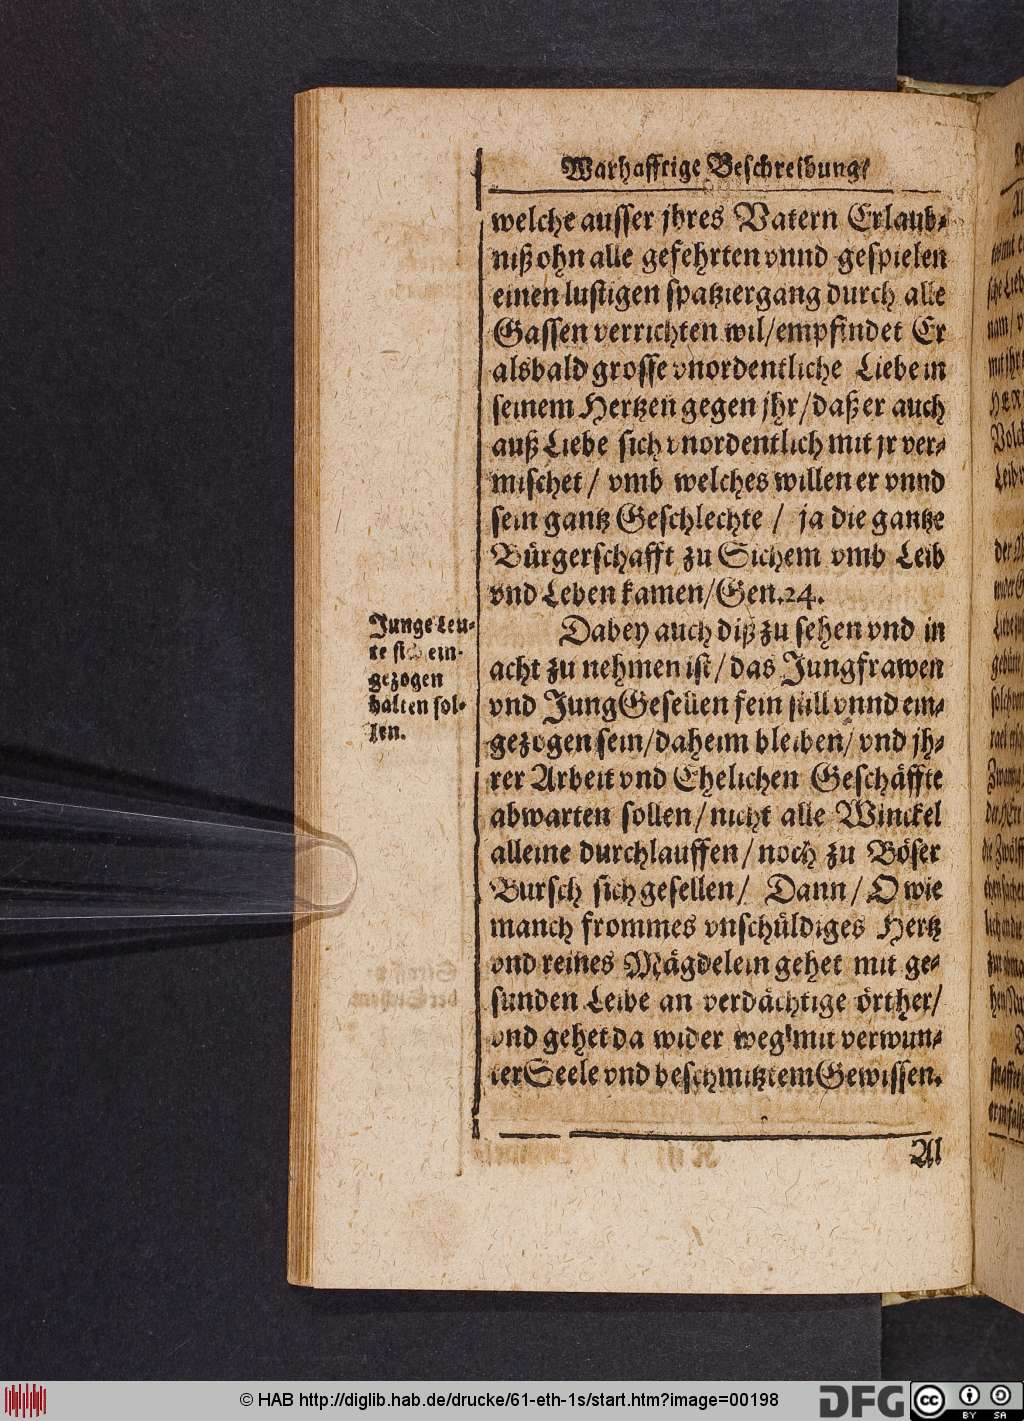 Warhafftige Beschreibung/
welche ausser jhres Vatern Erlaub-
niß ohn alle gefehrten vnnd gespielen
einen lustigen spatziergang durch alle
Gassen verrichten wil/empfindet Er
alsbald grosse vnordentliche Liebe in
seinem Hertzen gegen jhr/daß er auch
auß Liebe sich vnordentlich mit jr ver-
mischet/ vmb welches willen er vnnd
sein gantz Geschlechte / ja die gantze
Bürgerschafft zu Sichem vmb Leib
vnd Leben kamen/Gen.24.
Junge Leu-
te sich ein-
gezogen
halten sol-
len.
Dabey auch diß zu sehen vnd in
acht zu nehmen ist/das Jungfrawen
vnd JungGesellen fein still vnnd ein-
gezogen sein/daheim bleiben/vnd jh-
rer Arbeit vnd Ehelichen Geschäffte
abwarten sollen/nicht alle Winckel
alleine durchlauffen/noch zu Böser
Bursch sich gesellen/ Dann/O wie
manch frommes vnschüldiges Hertz
vnd reines Mägdelein gehet mit ge-
sunden Leibe an verdächtige örther/
vnd gehet da wider weg mit verwun-
ter Seele vnd beschmitztem Gewissen.
Al
© HAB http://diglib.hab.de/drucke/61-eth-1s/start.htm?image=00198
DFG
cc BY SA